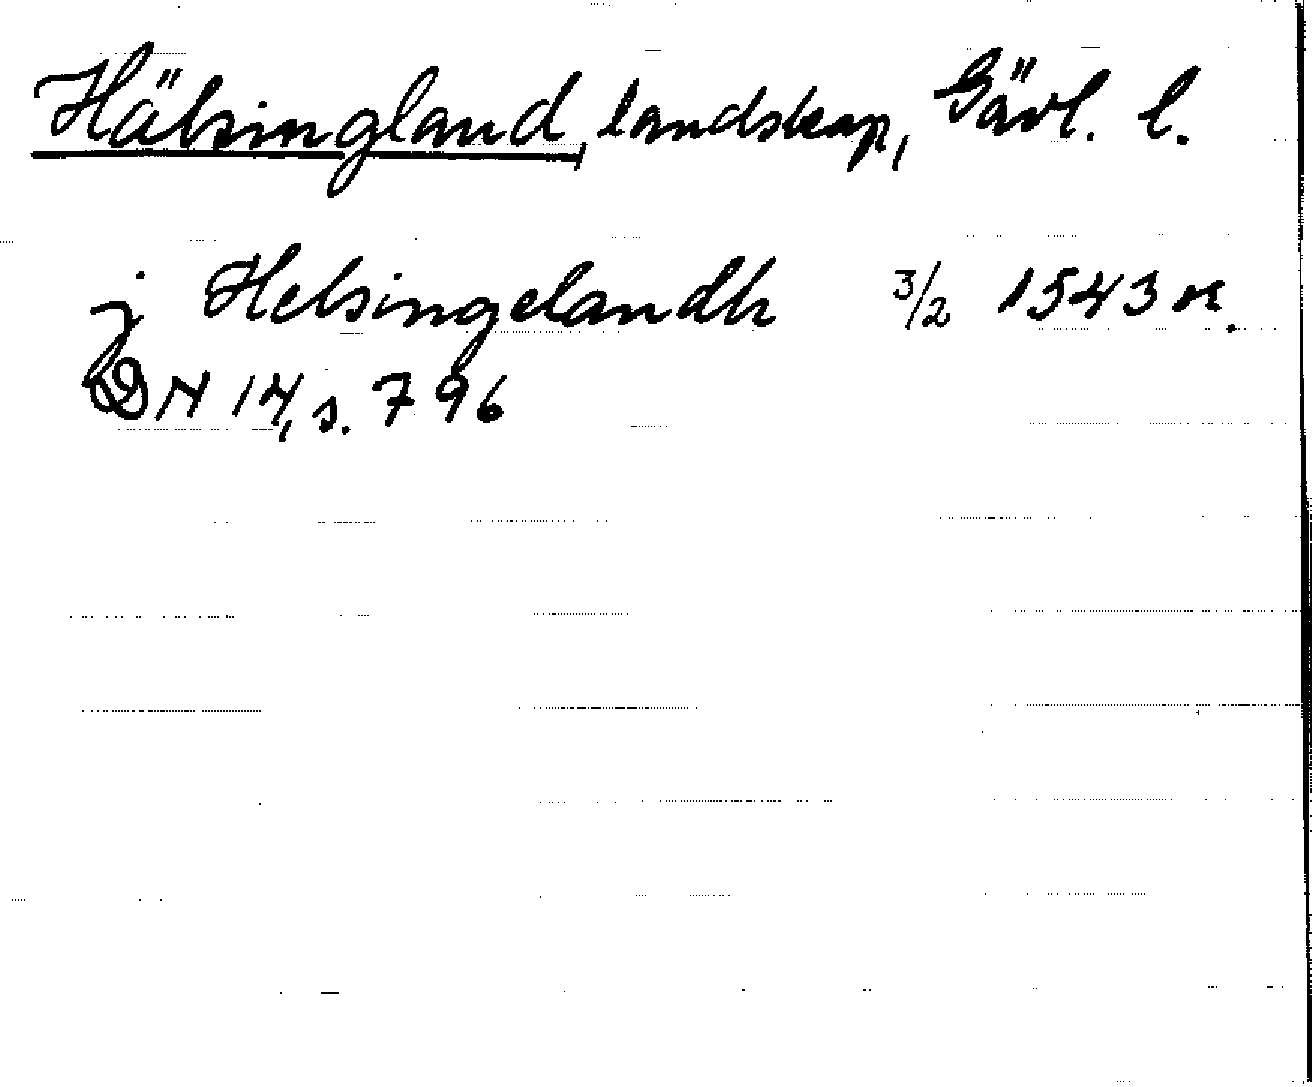 Hälsingland, landskap, Gävl. l.
j Helsingelandh 3/2 1543 or.
DN 14, s. 796